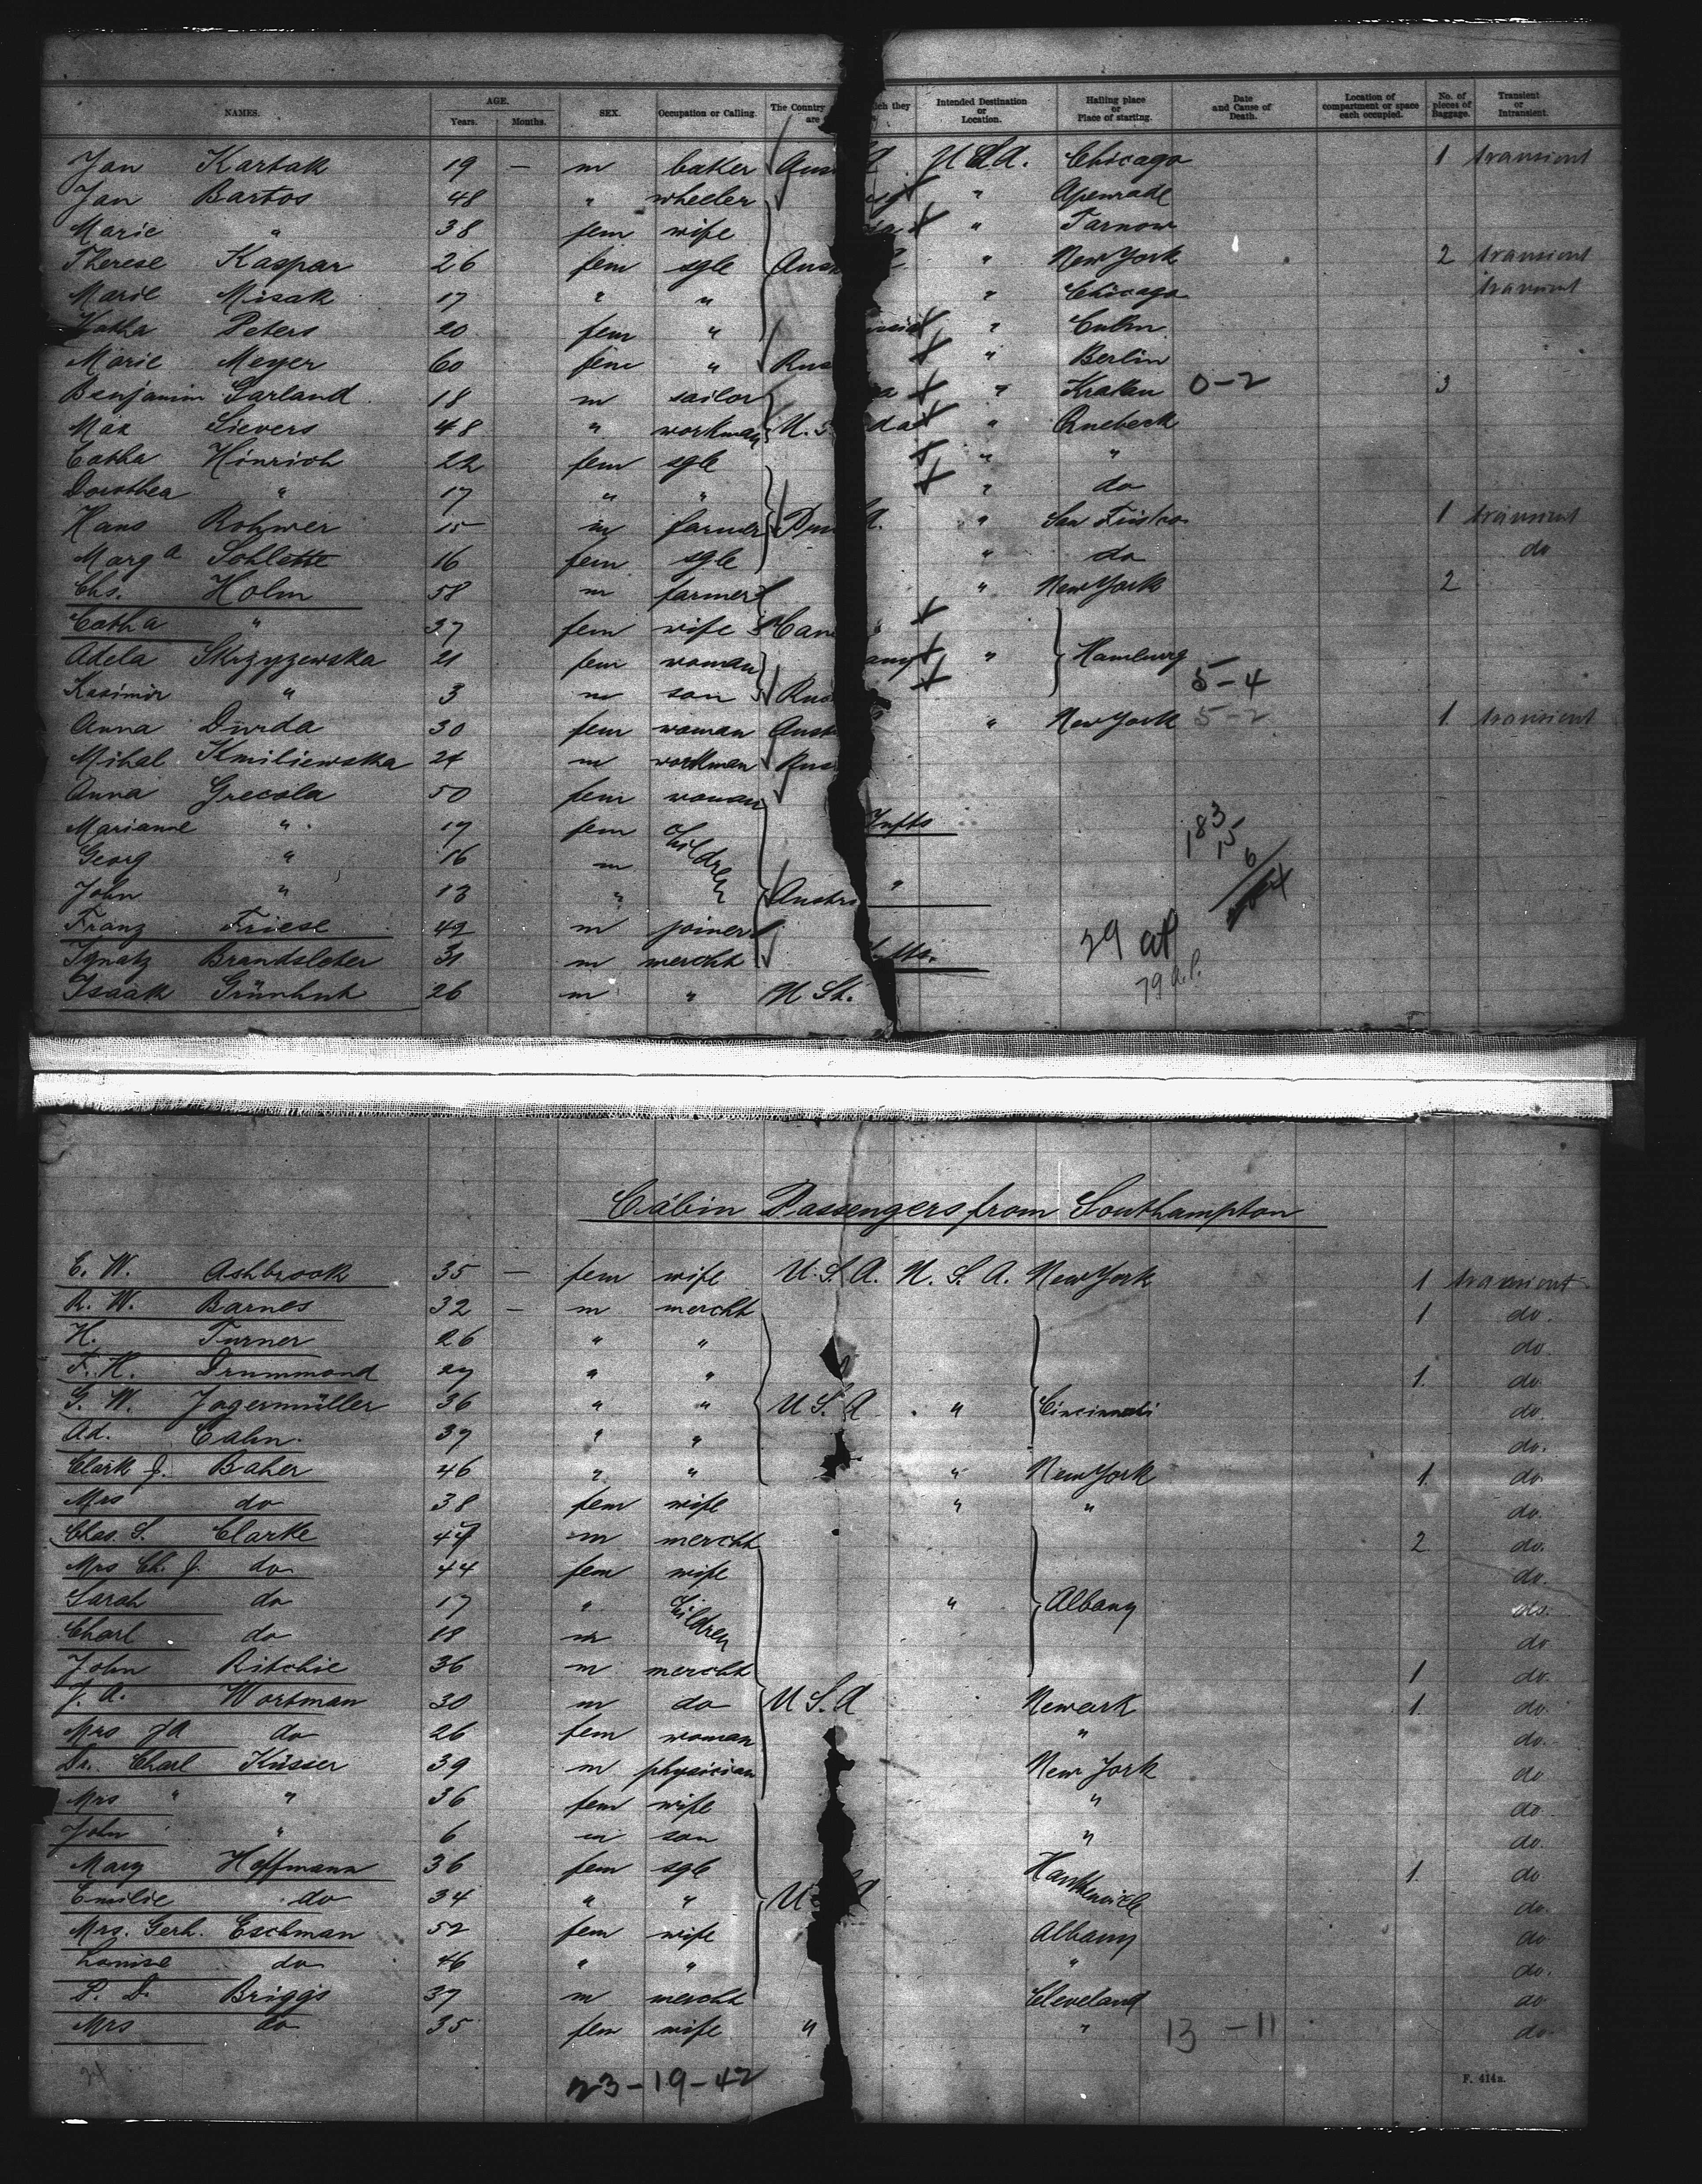 NAMES. AGE. Years. Months. SEX. Occupation or Calling. The Country are ich they Intended Destination or Location. Hailing place or Place of starting. Date and Cause of Death. Location of compartment or space each occupied. No. of pieces of Baggage. Transient or Intransient.
Jan Kartak 19 — m baker Aus U.S.A. Chicago 1 transient
Jan Bartos 48 " wheeler " Apenrade
Marie " 38 fem wife " Tarnow
Therese Kaspar 26 fem sgle Aus " New York 2 transient
Marie Misak 17 " " " Chicago transient
Katha Peters 20 fem " " Culm
Marie Meyer 60 fem " Rus " Berlin
Benjamin Garland 18 m sailor " Krakau 0-2 3
Max Sievers 48 " workman U.S "
Catha Hinrich 22 fem sgle " "
Dorothea " 17 " " " do
Hans Rohwer 15 m farmer " 1 transient
Marg a Schlotte 16 fem sgle " do do
Chs. Holm 58 m farmer " New York 2
Catha " 37 fem wife Can
Adela Skrzyzewska 21 fem woman " Hamburg
Kasimir " 3 m son Rus 5-4
Anna Durda 30 fem woman Aust " New York 5-2 1 transient
Mihal Kmiliewska 24 m workman Rus
Anna Grecola 50 fem woman
Marianne " 17 fem children
Georg " 16 m
John " 13 " Austr "
Franz Friese 42 m joiner
Ignatz Brandsleter 31 m mercht
Isaak Grünhut 26 m " U St.
183
15
6
29 at
79 a.l.
Cabin Passengers from Southampton
E. W. Ashbrook 35 — fem wife U.S.A. U.S.A. New York 1 transient
R. W. Barnes 32 — m mercht 1 do.
H. Turner 26 " " do
F. H. Drummond 27 " " 1. do.
G. W. Jagermüller 36 " " U S. A " Cincinnati do.
Ad. Cahn. 37 " " do.
Clark J. Baher 46 " " " New York 1. do
Mrs do 38 fem wife " " do.
Chas. S. Clarke 47 m mercht 2 do.
Mrs Ch. J. do 44 fem wife do.
Sarah do 17 " children " Albany do.
Charl do 18 m do
John Ritchie 36 m mercht 1 do.
J. A. Wortman 30 m do U S. A Newark 1. do
Mrs JA do 26 fem woman " do.
Dr. Charl Küsser 39 m physician New York do
Mrs " " 36 fem wife " do
John " 6 m son " do.
Mary Hoffmann 36 fem sgle 1. do
Emilie do 34 " " U do.
Mrs. Gerh. Eschman 52 fem wife Albany do
Louise do 46 " " " do.
P. D. Briggs 37 m mercht Cleveland do
Mrs do 35 fem wife " " 13 -11 do
24 23-19-42
F. 414a.